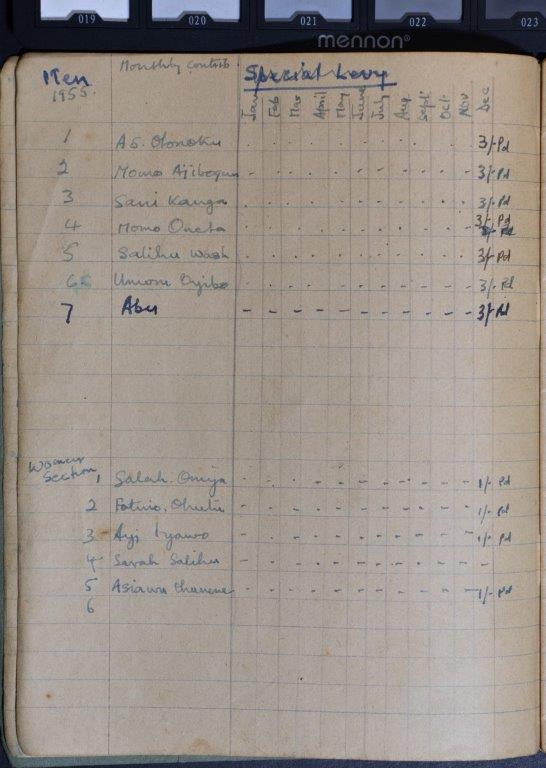 019 020 021 022 023
mennon®
Men Monthly Contrib Special Levy
1955. Jan Feb Mar April May June July Aug Sept Oct Nov Dec
1 A.S. Otonoku 3/- Pd
2 Momo Ajibogun 3/- Pd
3 Sani Kanga 3/- Pd
4 Momo Oneta 3/- Pd
5 Salihu Wash 3/- Pd
6 Umoru 3/- Pd
7 Abu 3/- Pd
Women
Section 1 Salah 1/- Pd
2 1/- Pd
3 Ayi Iyawo 1/- Pd
4 Sarah Salihu
5 Asiawu 1/- Pd
6